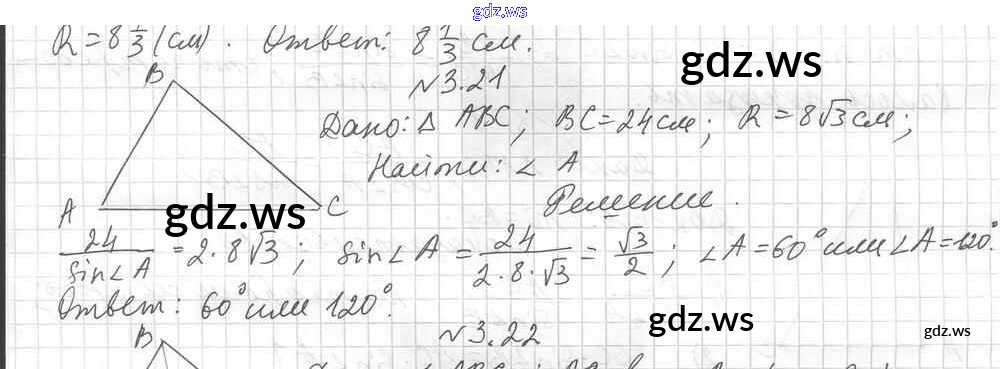 gdz.ws
R = 8 1/3 (см). Ответ: 8 1/3 см.
gdz.ws
N3.21
B
Дано: Δ ABC; BC = 24 см; R = 8√3 см;
Найти: ∠ A
Решение.
A C
gdz.ws
24/sin∠A = 2·8√3; sin∠A = 24/(2·8·√3) = √3/2; ∠A = 60° или ∠A = 120°.
Ответ: 60° или 120°.
gdz.ws
gdz.ws
N3.22
B